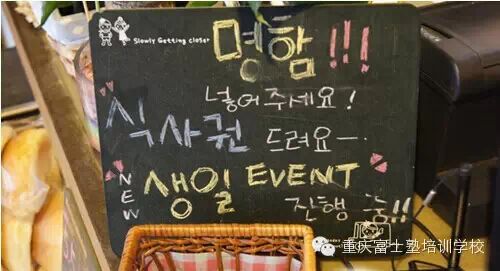 Slowly Getting closer
명함!!!
넣어주세요!
식사권 드려요~
NEW
생일 EVENT
진행 중!!
重庆富士塾培训学校